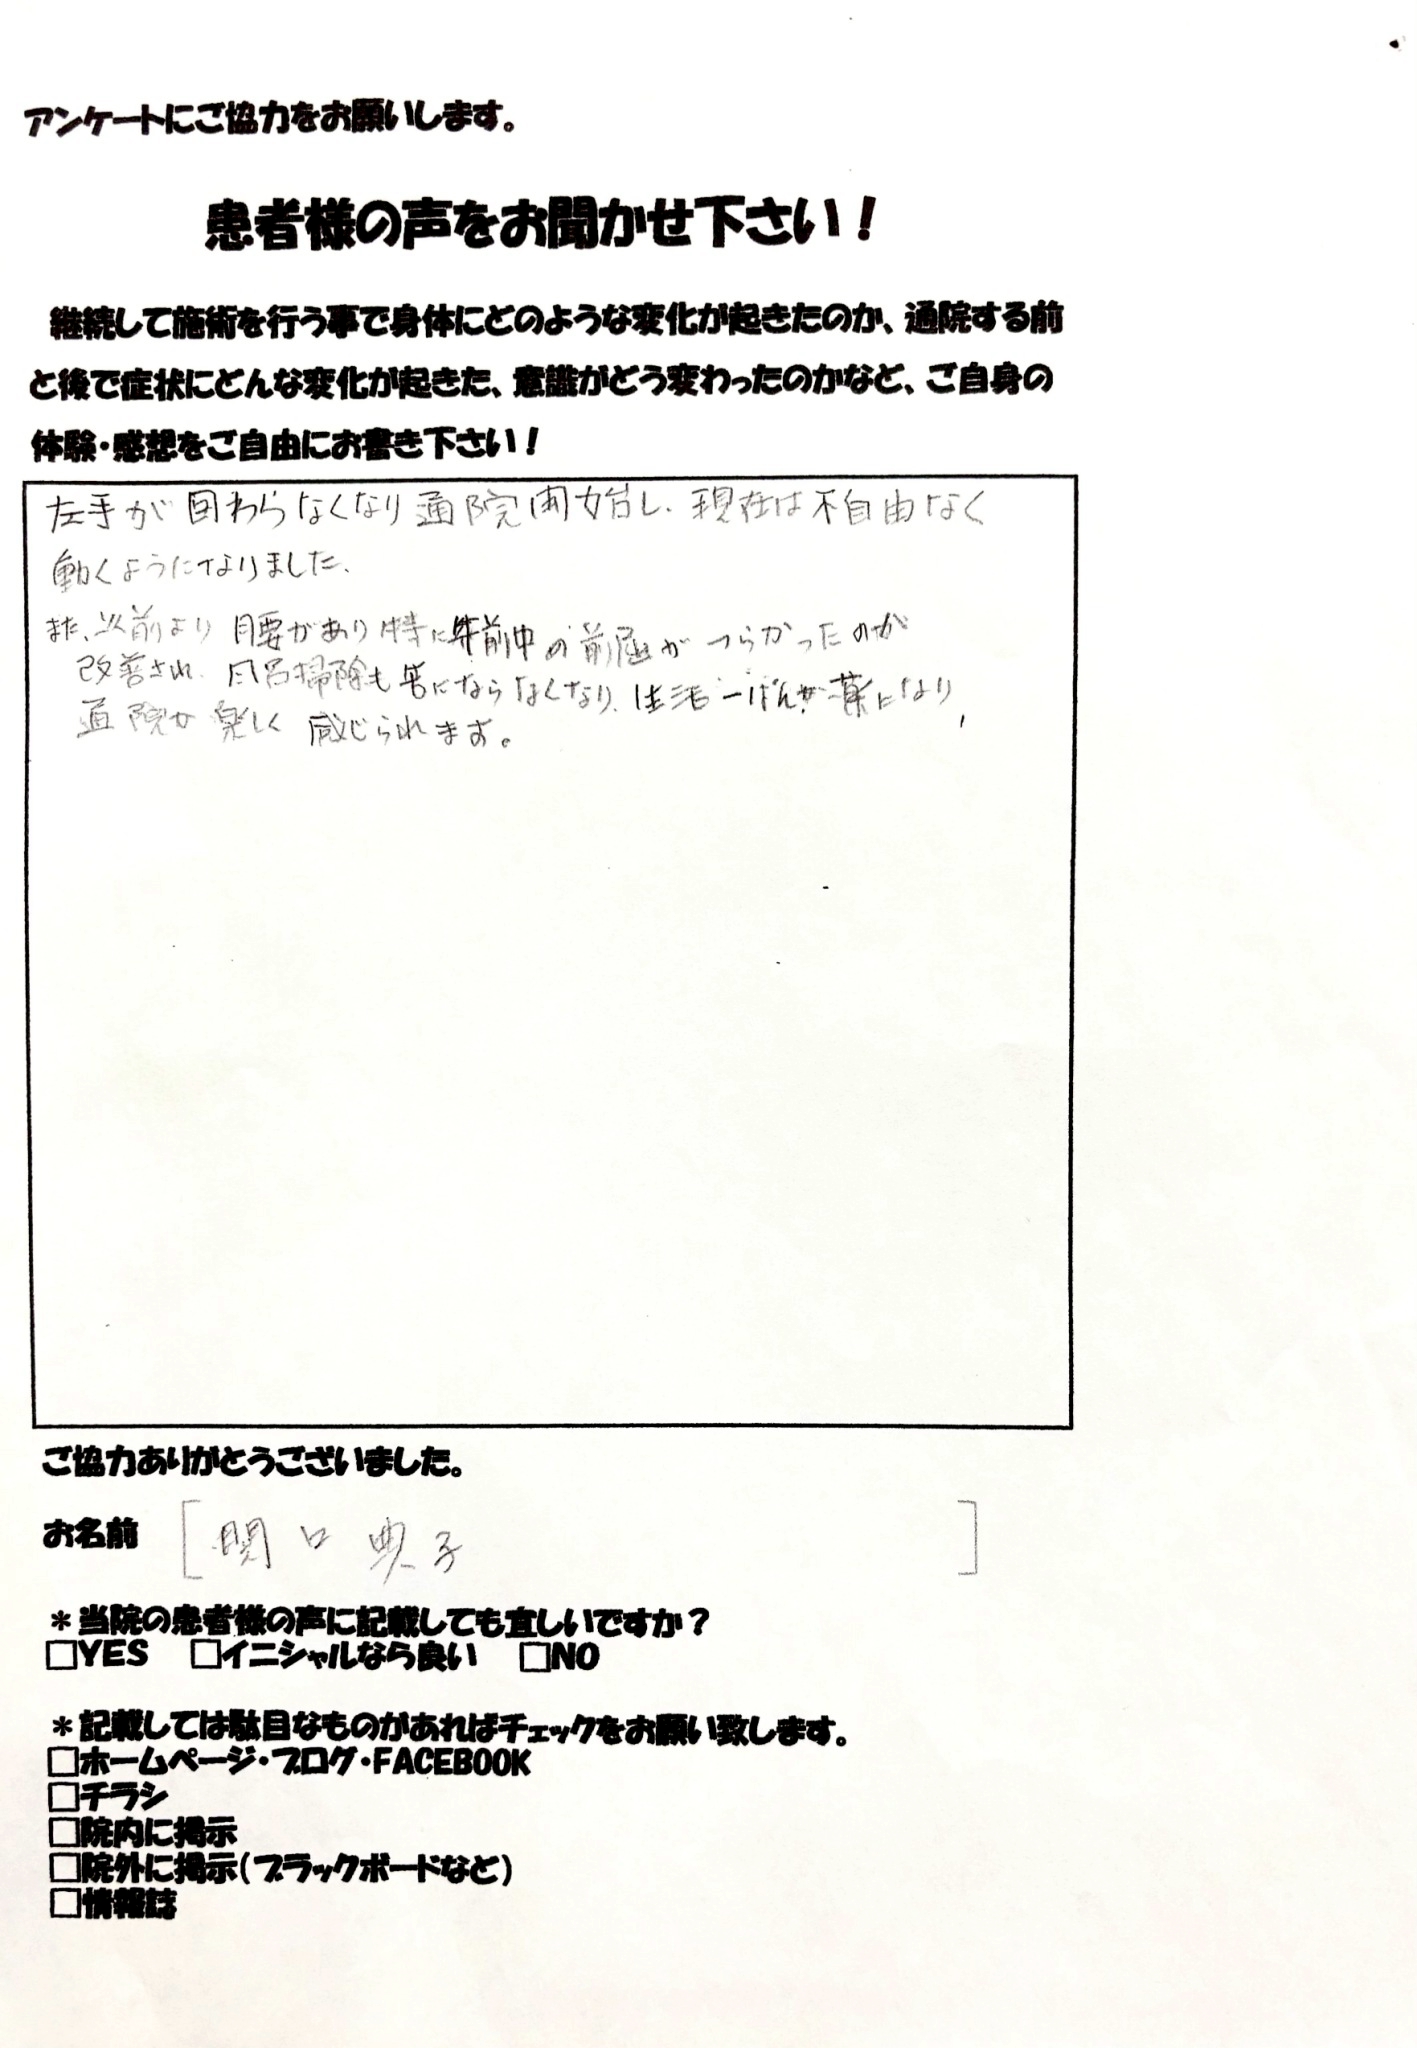 アンケートにご協力をお願いします。
患者様の声をお聞かせ下さい！
継続して施術を行う事で身体にどのような変化が起きたのか、通院する前
と後で症状にどんな変化が起きた、意識がどう変わったのかなど、ご自身の
体験・感想をご自由にお書き下さい！
左手が回わらなくなり通院開始し、現在は不自由なく
動くようになりました、
また、以前より腰があり特に午前中の前屈がつらかったのが
改善され、風呂掃除も苦にならなくなり、生活一ぱんが楽になり、
通院が楽しく感じられます。
ご協力ありがとうございました。
お名前 [関口典子]
＊当院の患者様の声に記載しても宜しいですか？
□YES □イニシャルなら良い □NO
＊記載しては駄目なものがあればチェックをお願い致します。
□ホームページ・ブログ・FACEBOOK
□チラシ
□院内に掲示
□院外に掲示（ブラックボードなど）
□情報誌